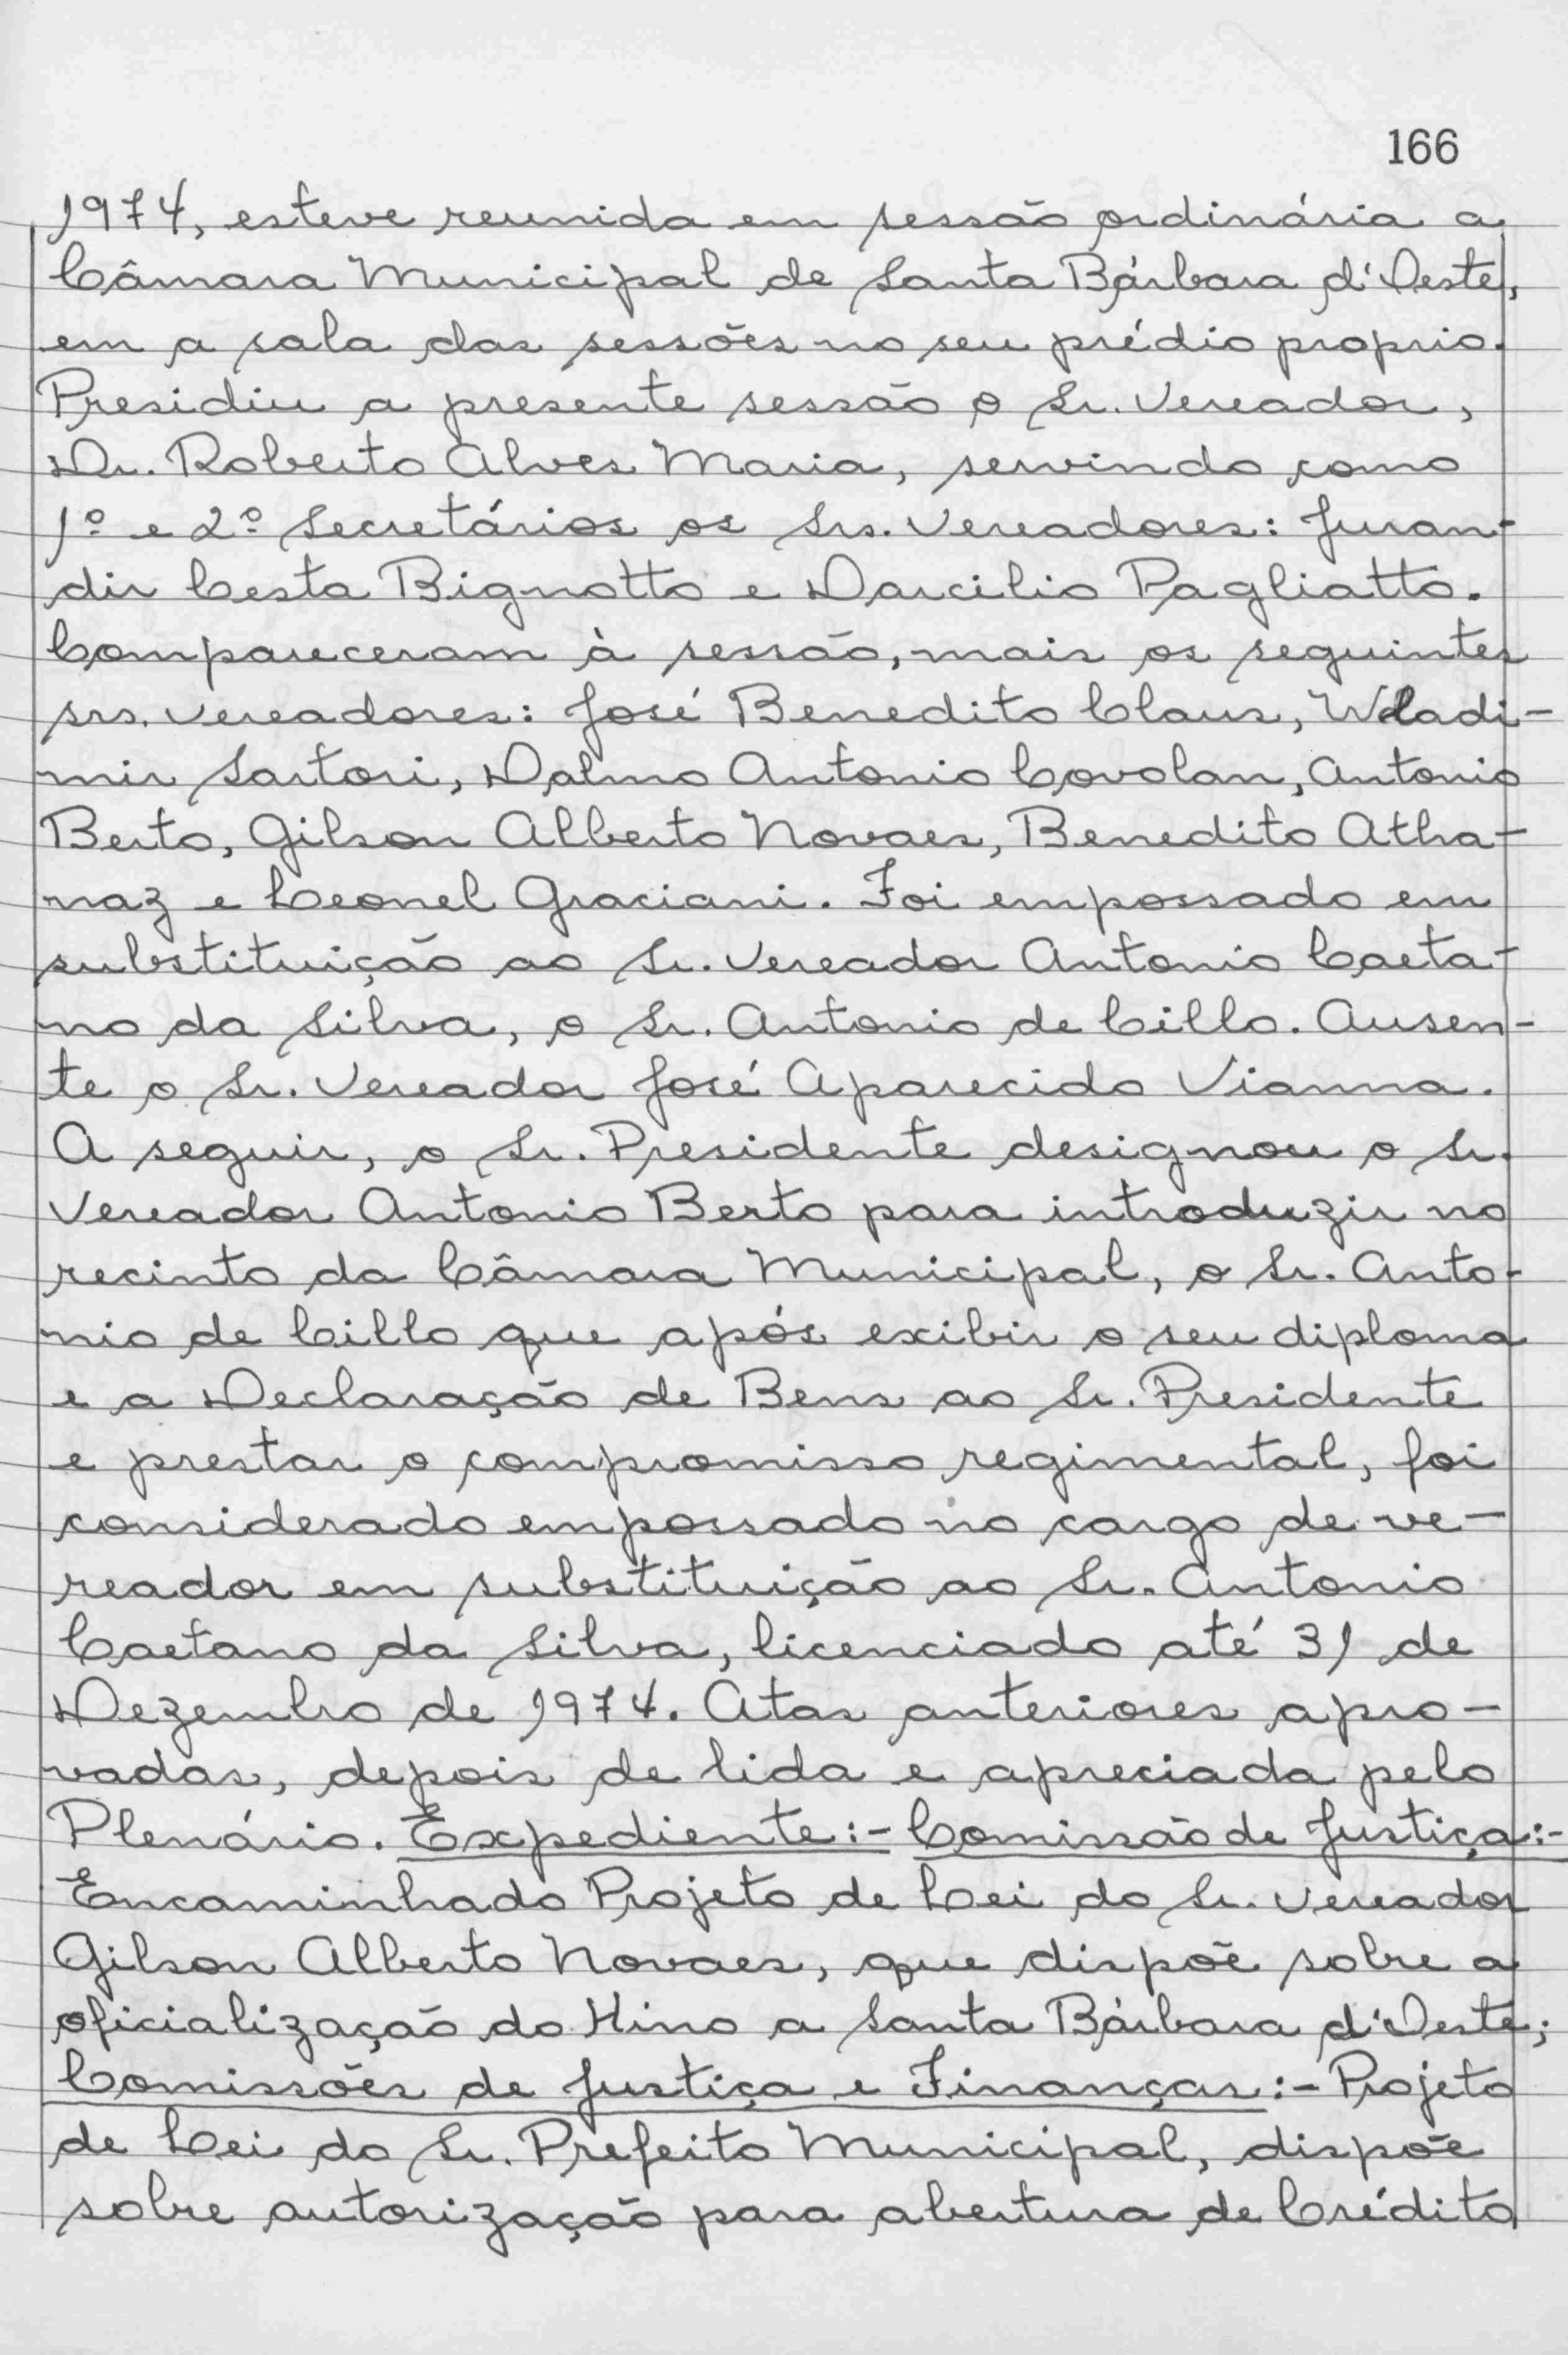 166
1974, esteve reunida em sessão ordinária a
Câmara Municipal de Santa Bárbara d'Oeste,
em a sala das sessões no seu prédio proprio.
Presidiu a presente sessão o Sr. Vereador,
Dr. Roberto Alves Maria, servindo como
1º e 2º Secretários os Srs. Vereadores: Juran-
dir Cesta Bignotto e Darcilio Pagliatto.
Compareceram à sessão, mais os seguintes
srs. vereadores: José Benedito Claus, Wladi-
mir Sartori, Dalmo Antonio Covolan, Antonio
Berto, Gilson Alberto Novaes, Benedito Atha-
naz e Leonel Graciani. Foi empossado em
substituição ao Sr. Vereador Antonio Caeta-
no da Silva, o Sr. Antonio de Cillo. Ausen-
te o Sr. Vereador José Aparecido Vianna.
A seguir, o Sr. Presidente designou o Sr.
Vereador Antonio Berto para introduzir no
recinto da Câmara Municipal, o Sr. Anto-
nio de Cillo que após exibir o seu diploma
e a Declaração de Bens ao Sr. Presidente
e prestar o compromisso regimental, foi
considerado empossado no cargo de ve-
reador em substituição ao Sr. Antonio
Caetano da Silva, licenciado até 31 de
Dezembro de 1974. Atas anteriores apro-
vadas, depois de lida e apreciada pelo
Plenário. Expediente:- Comissão de Justiça:-
Encaminhado Projeto de Lei do Sr. Vereador
Gilson Alberto Novaes, que dispõe sobre a
oficialização do Hino a Santa Bárbara d'Oeste;
Comissões de Justiça e Finanças:- Projeto
de Lei do Sr. Prefeito Municipal, dispõe
sobre autorização para abertura de Crédito